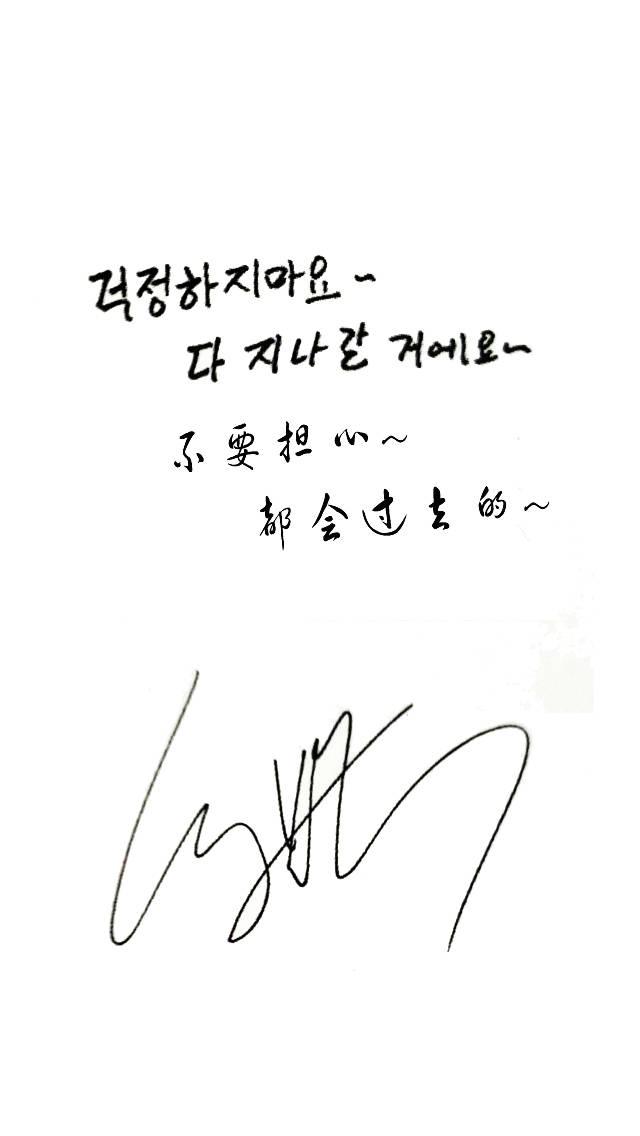 걱정하지마요~
다 지나갈 거에요~
不要担心~
都会过去的~